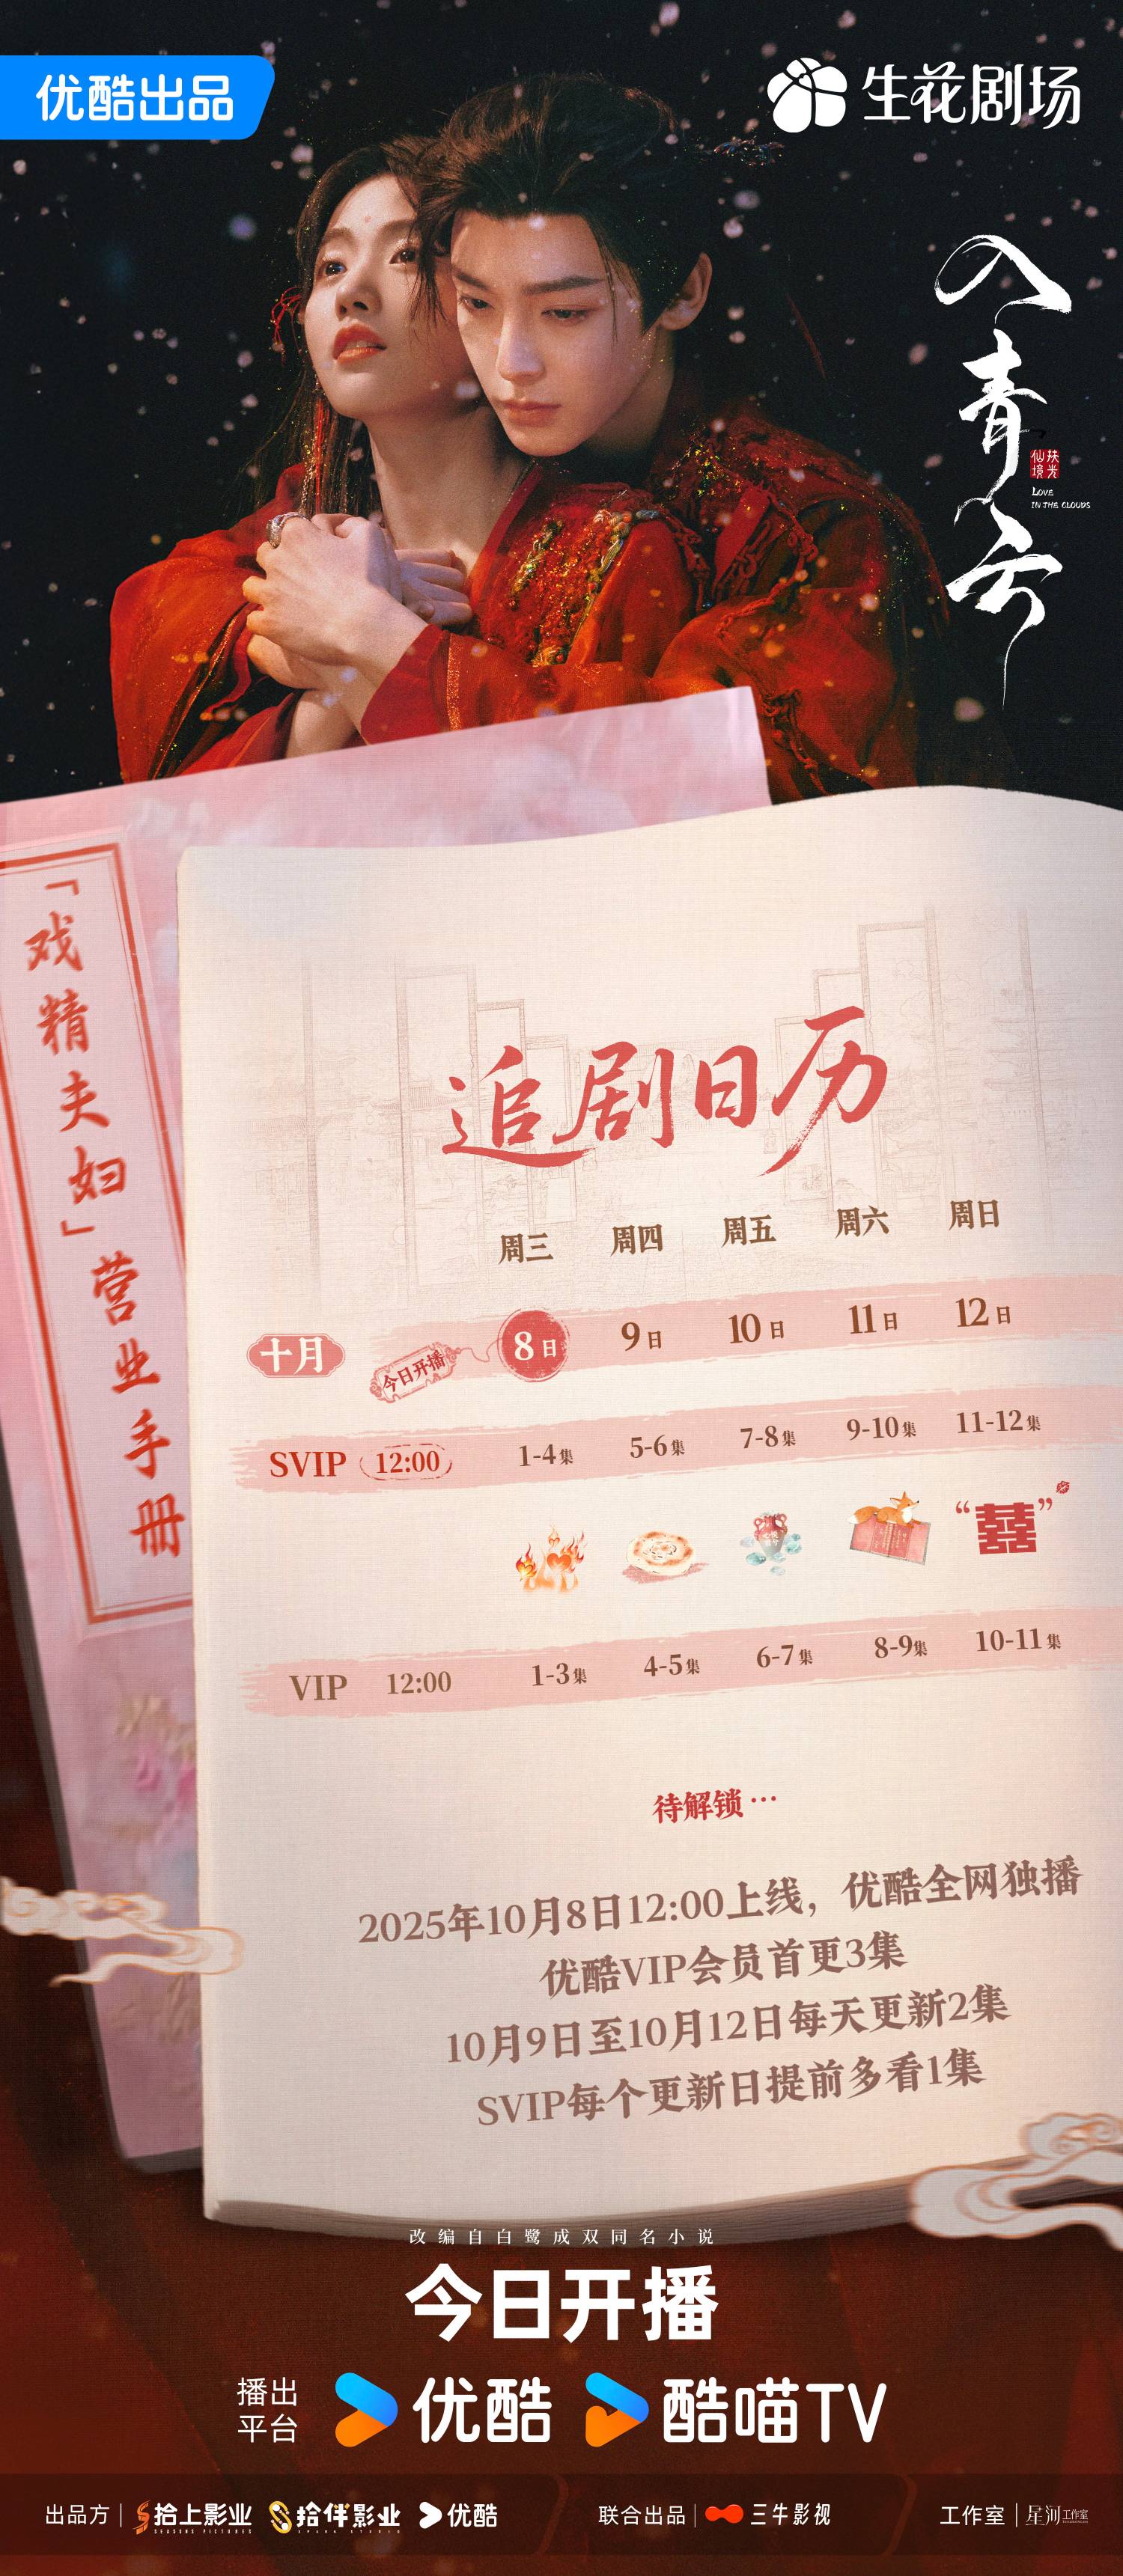 优酷出品
生花剧场
入青云
扶光
仙境
LOVE
IN THE CLOUDS
「戏精夫妇」营业手册
追剧日历
周三 周四 周五 周六 周日
十月 今日开播 8日 9日 10日 11日 12日
SVIP 12:00 1-4集 5-6集 7-8集 9-10集 11-12集
“囍”
VIP 12:00 1-3集 4-5集 6-7集 8-9集 10-11集
待解锁…
2025年10月8日12:00上线，优酷全网独播
优酷VIP会员首更3集
10月9日至10月12日每天更新2集
SVIP每个更新日提前多看1集
改编自白鹭成双同名小说
今日开播
播出平台 优酷 酷喵TV
出品方 拾上影业 SEASONS PICTURES 拾伴影业 优酷 联合出品 三牛影视 工作室 星河工作室